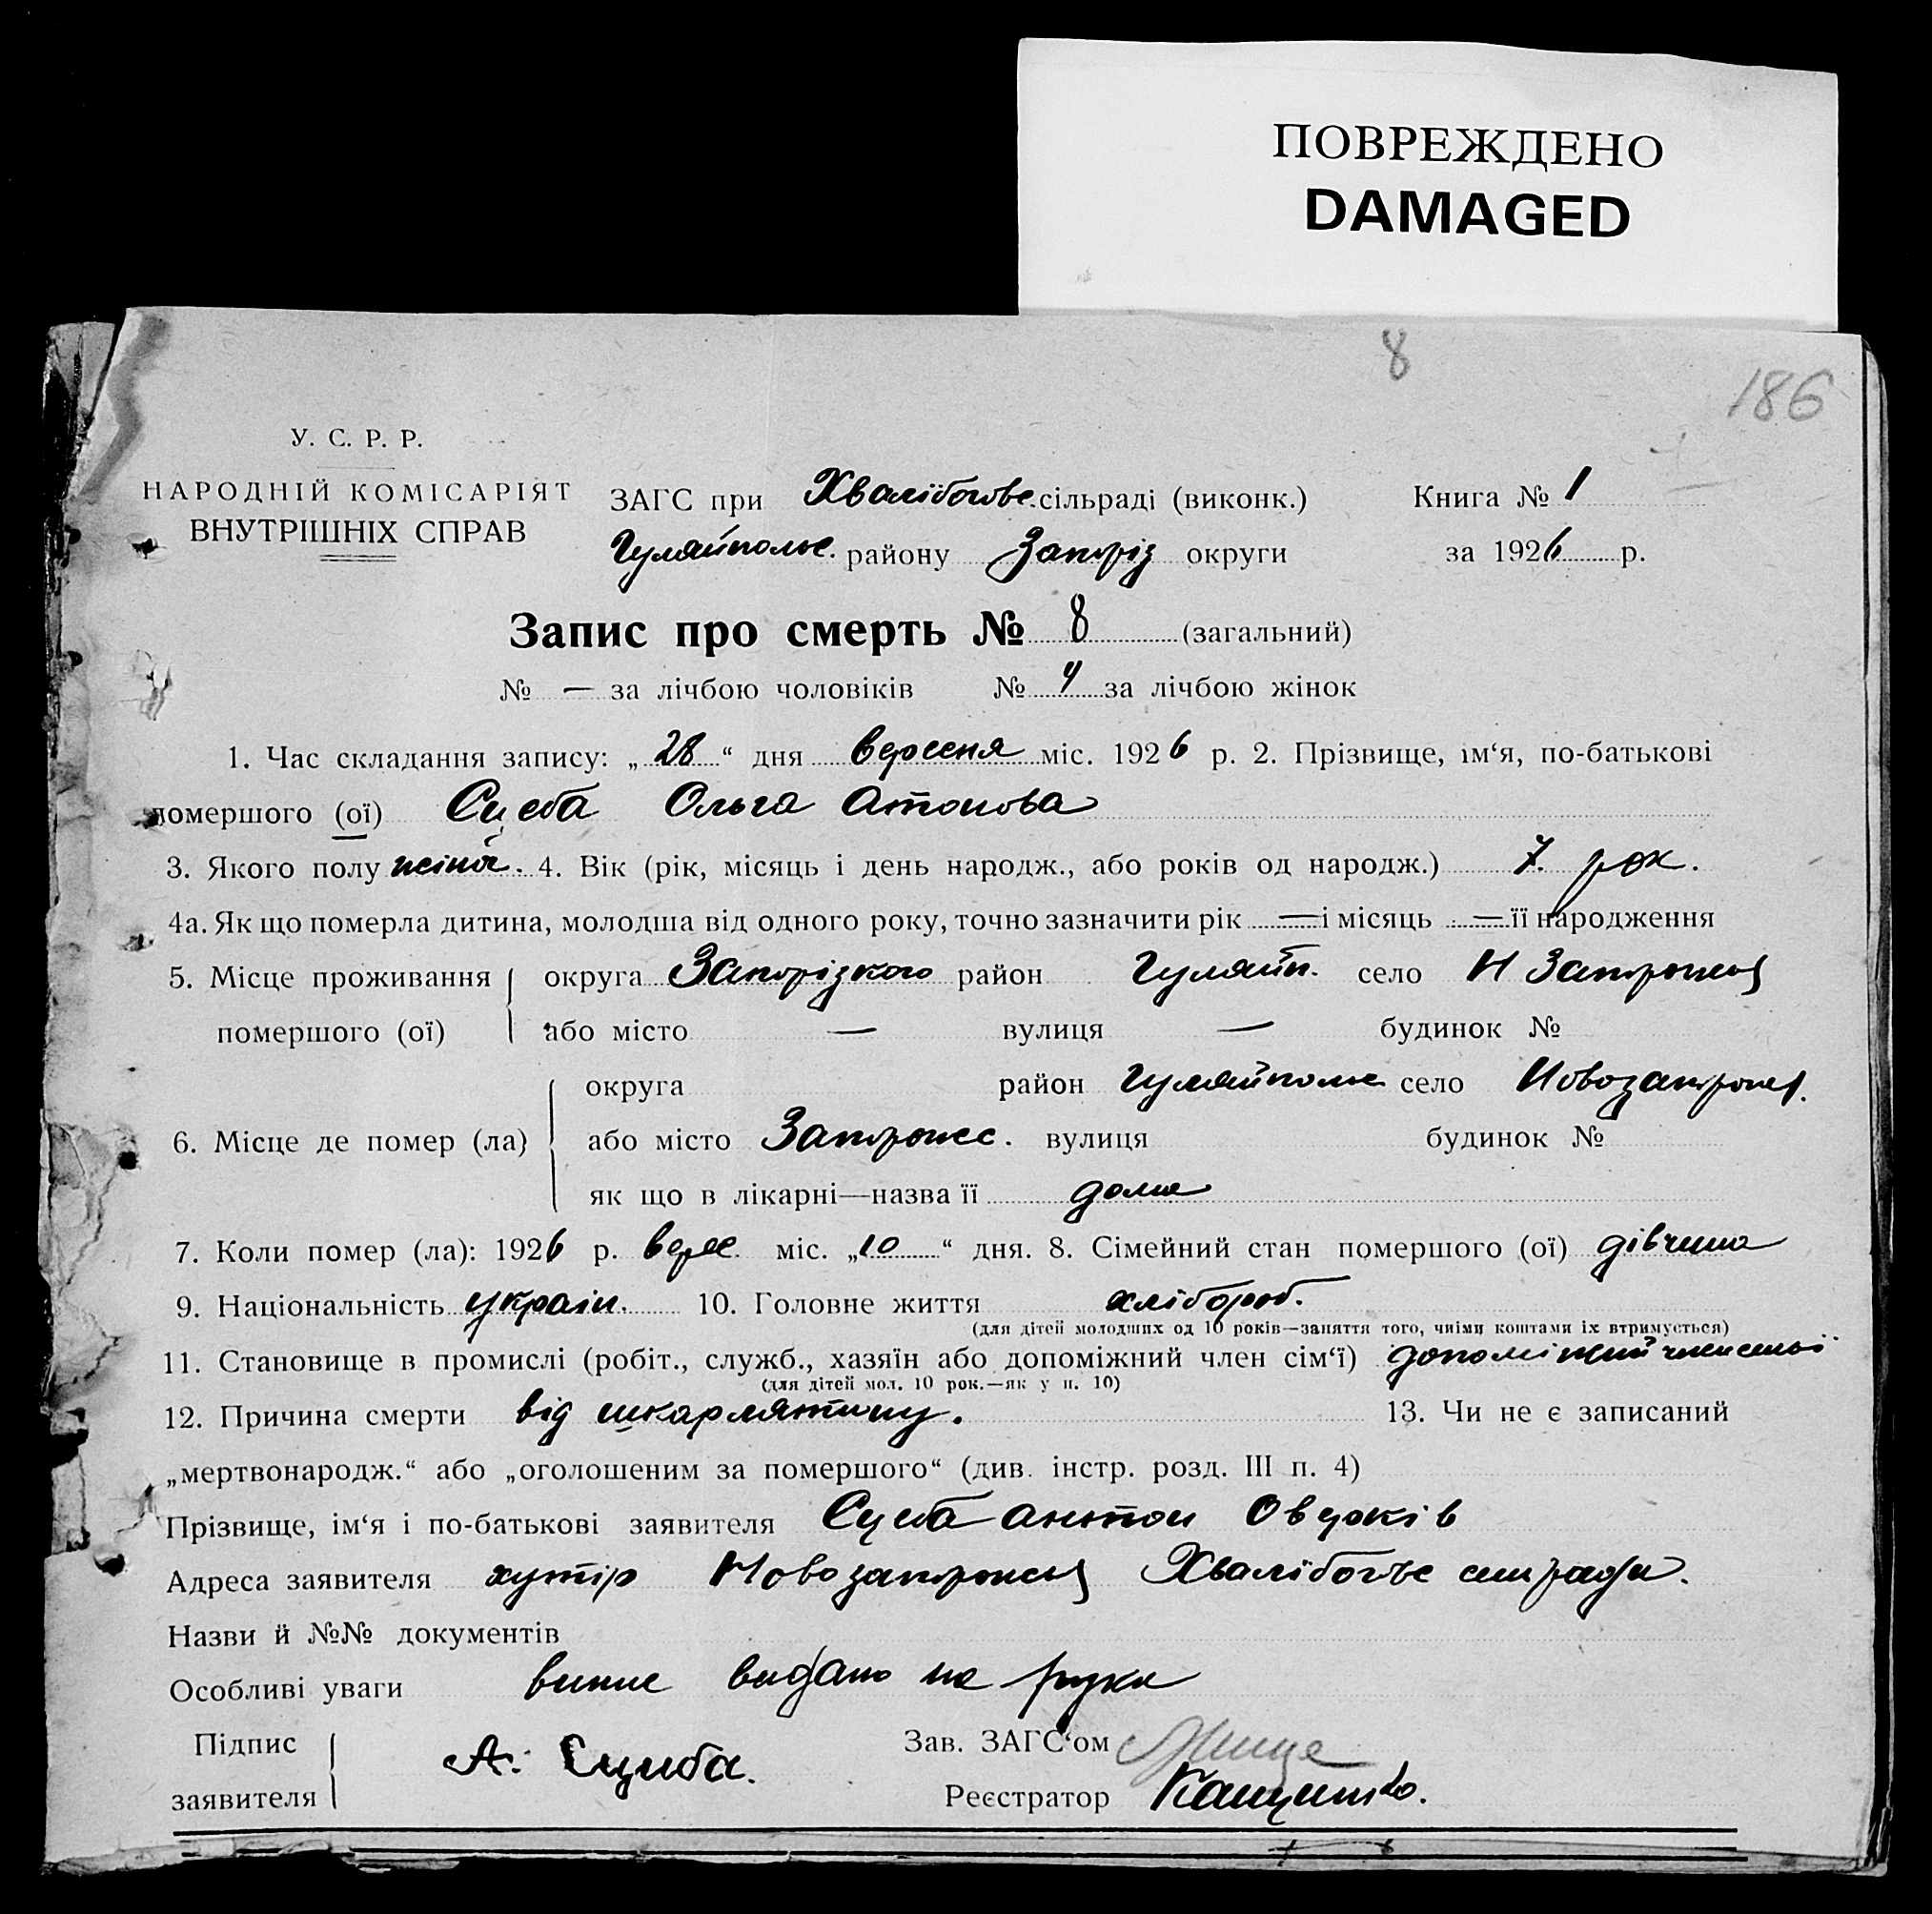 ПОВРЕЖДЕНО
DAMAGED
8
186
У. С. Р. Р.
НАРОДНІЙ КОМІСАРІЯТ
ВНУТРІШНІХ СПРАВ
ЗАГС при Хвалібогове. сільраді (виконк.) Книга № 1
Гуляйпольс. району Запоріз округи за 1926 р.
Запис про смерть № 8 (загальний)
№ — за лічбою чоловіків № 4 за лічбою жінок
1. Час складання запису: „28“ дня вересня міс. 1926 р. 2. Прізвище, ім‘я, по-батькові
помершого (ої) Ольга Атонова
3. Якого полу жіноч. 4. Вік (рік, місяць і день народж., або років од народж.) 7. рок.
4а. Як що померла дитина, молодша від одного року, точно зазначити рік — і місяць — її народження
5. Місце проживання округа Запорізкого район Гуляйп. село Н
помершого (ої) або місто — вулиця — будинок №
округа район Гуляйпольс село
6. Місце де помер (ла) або місто вулиця будинок №
як що в лікарні—назва її дома
7. Коли помер (ла): 1926 р. верес. міс. „10“ дня. 8. Сімейний стан помершого (ої) дівчина
9. Національність україн. 10. Головне життя хлібороб.
(для дітей молодших од 10 років—заняття того, чиїми коштами їх втримується)
11. Становище в промислі (робіт., служб., хазяїн або допоміжний член сім‘ї) допоміжний член семьї
(для дітей мол. 10 рок.—як у п. 10)
12. Причина смерти від шкарлятини. 13. Чи не є записаний
„мертвонародж.“ або „оголошеним за помершого“ (див. інстр. розд. III п. 4)
Прізвище, ім‘я і по-батькові заявителя Антон
Адреса заявителя хутір Хвалібогове
Назви й №№ документів
Особливі уваги видано на руки
Підпис
заявителя А.
Зав. ЗАГС‘ом
Реєстратор